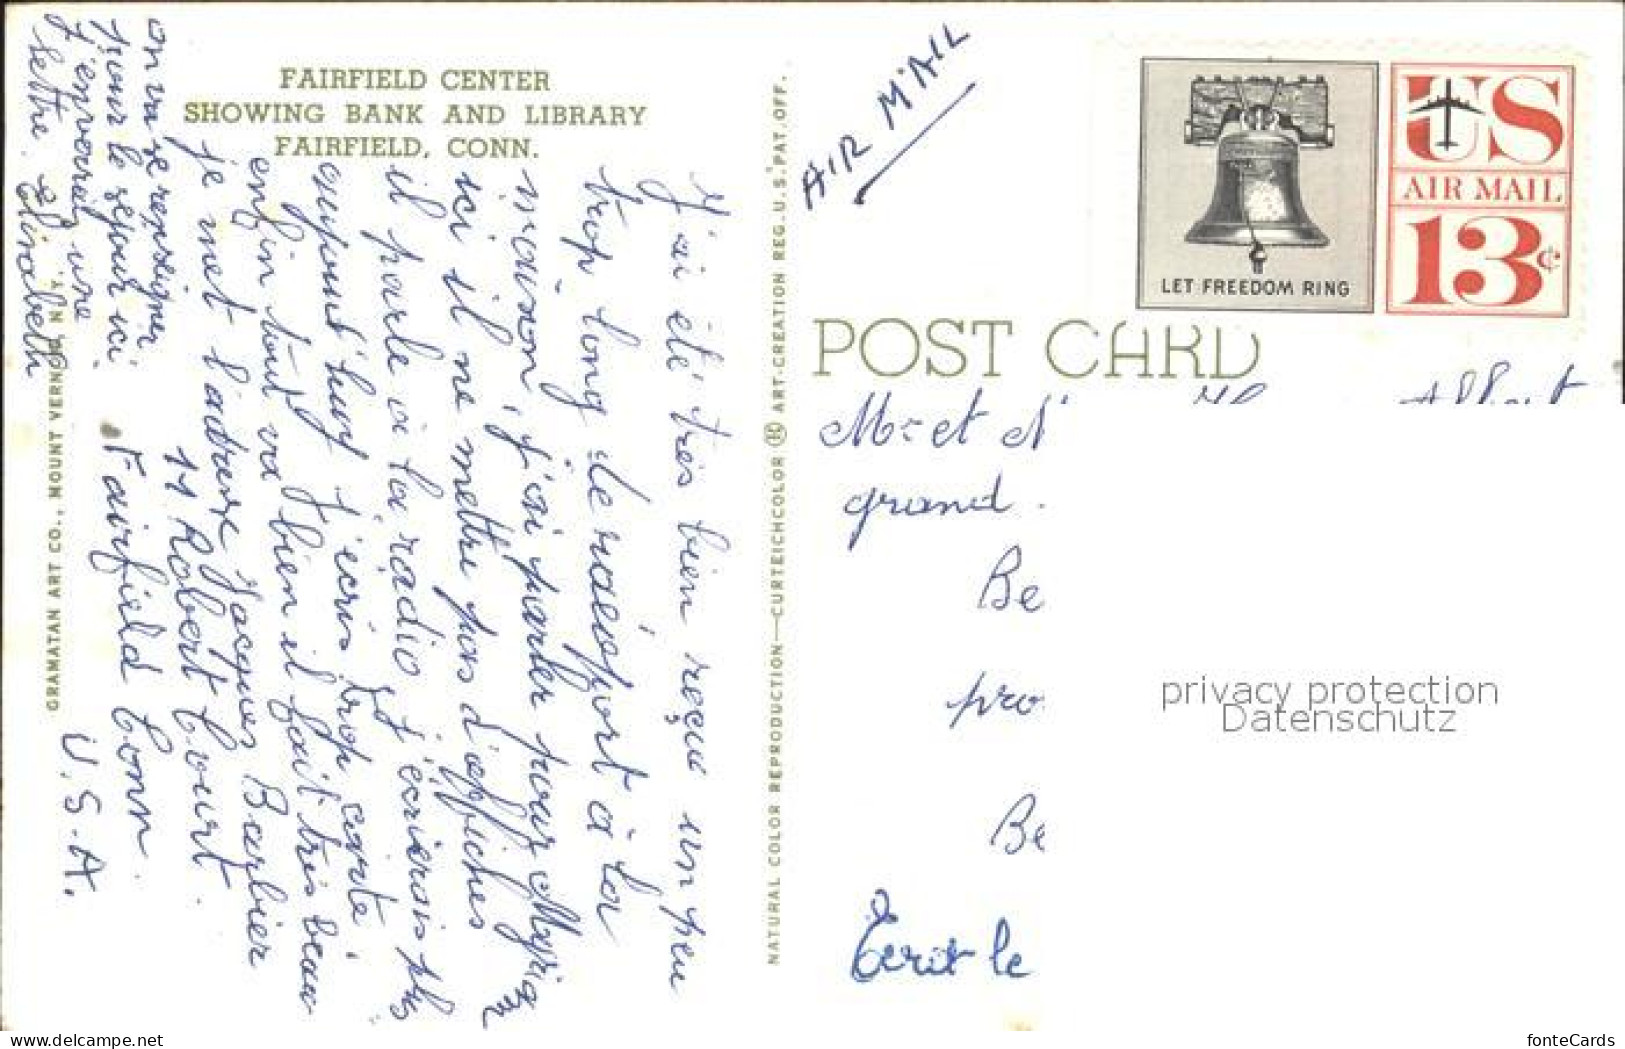 FAIRFIELD CENTER
SHOWING BANK AND LIBRARY
FAIRFIELD, CONN.
J'ai été très bien reçu un peu
trop long le à la
maison j'ai parler pour
ici il ne mettre pas d'affiches
il parle à la radio j'écrirais plus
aujourd'huy j'écris trop carte
enfin tout va bien il fait très beau
je met l'adresse Jacques Barbier
11 Robert Court.
Fairfield Conn.
U.S.A.
on va se renseigner
pour le séjour ici
j'enverrai une
lettre Elisabeth
GRAMATAN ART CO., MOUNT VERNON, N.Y.
NATURAL COLOR REPRODUCTION—CURTEICHCOLOR ® ART-CREATION REG. U.S. PAT. OFF.
AIR MAIL
LET FREEDOM RING
US
AIR MAIL
13¢
POST CARD
Mr et Albert
grand
Be
pro
Be
Écrit le
privacy protection
Datenschutz
www.delcampe.net
fonteCards